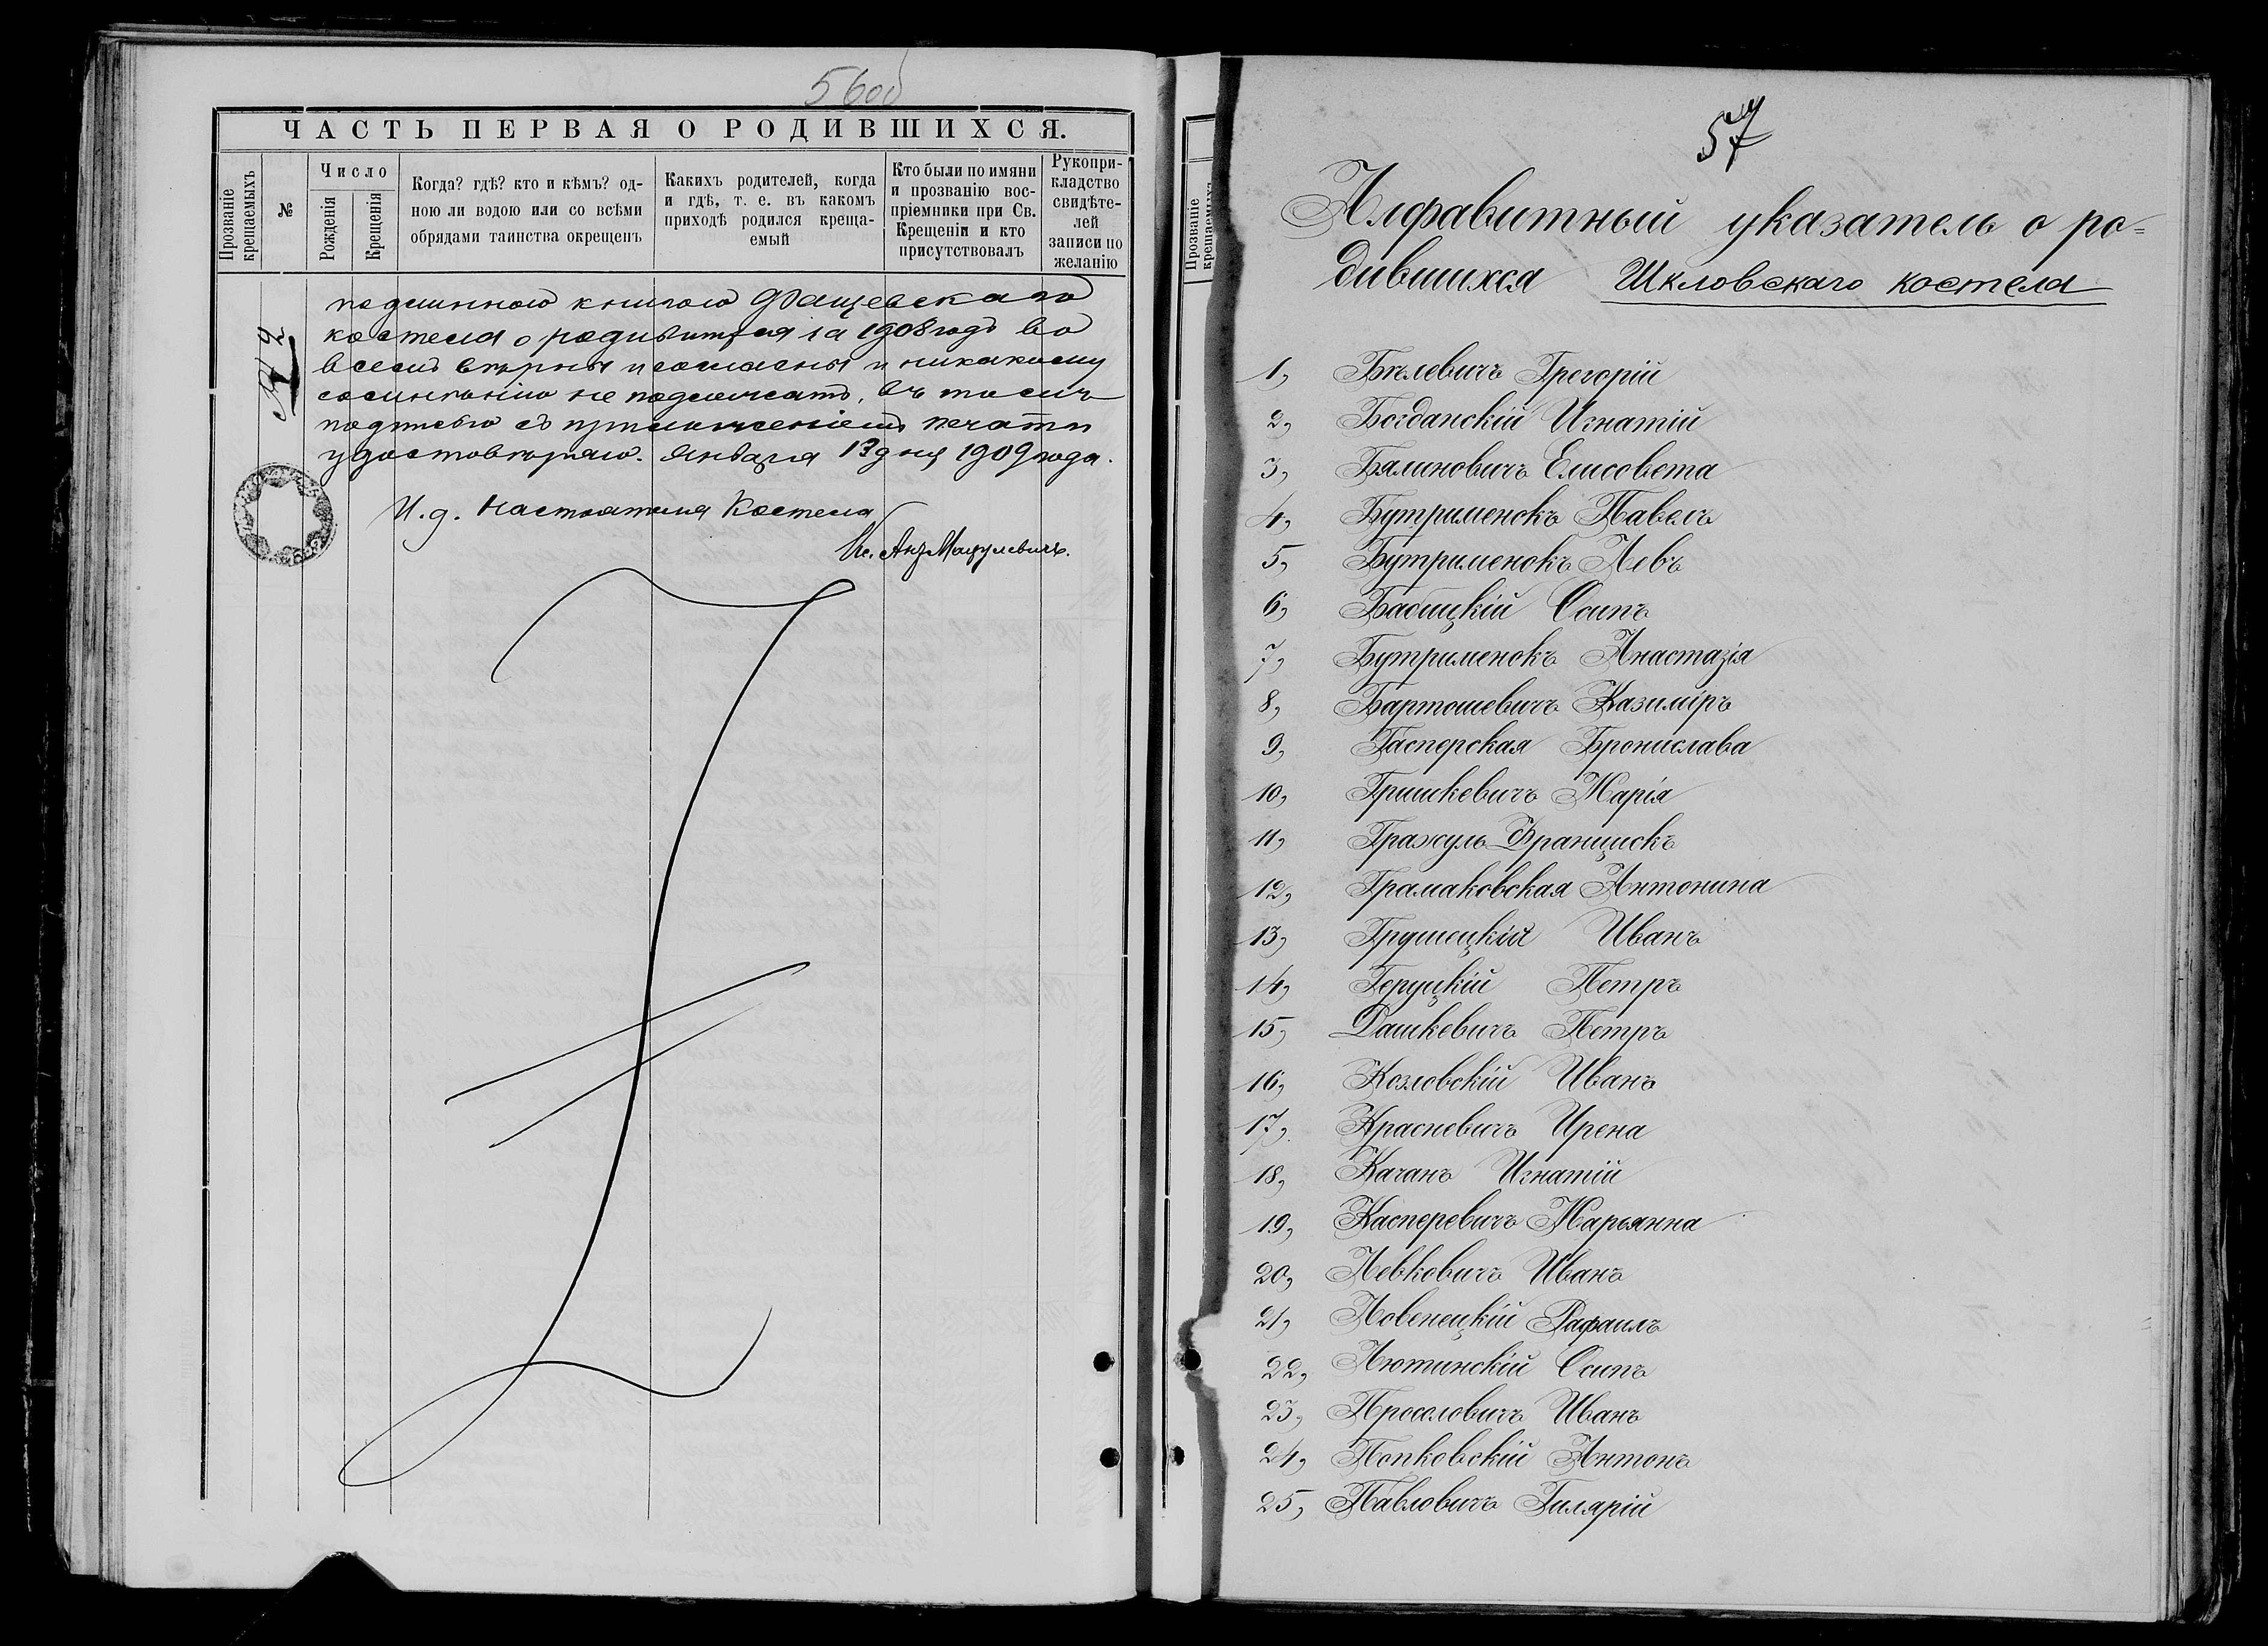 56об
ЧАСТЬ ПЕРВАЯ О РОДИВШИХСЯ.
Прозваніе крещаемыхъ
№
Число
Рожденія
Крещенія
Когда? гдѣ? кто и кѣмъ? од-
ною ли водою или со всѣми
обрядами таинства окрещенъ
Какихъ родителей, когда
и гдѣ, т. е. въ какомъ
приходѣ родился креща-
емый
Кто были по имяни
и прозванію вос-
пріемники при Св.
Крещеніи и кто
присутствовалъ
Рукопри-
кладство
свидѣте-
лей
записи по
желанію
подлинною книгою Фащевскаго
костела о родившихся за 1908 годъ во
всемъ вѣрны и согласны и никакому
сомнѣнію не подлежатъ, въ томъ
подписью съ приложеніемъ печати
удостовѣряю. Января 13 дня 1909 года.
И. д. Настоятеля Костела
Кс.
57
Прозваніе
крещаемыхъ
Алфавитный указатель о ро=
дившихся Шкловскаго костела
1, Бѣлевичъ Грегорій
2, Богданскій Игнатій
3, Бялиновичъ Елисовета
4, Бутрименокъ Павелъ
5, Бутрименокъ Левъ
6, Бабицкій Осипъ
7, Бутрименокъ Анастазія
8, Бартошевичъ Казиміръ
9, Гасперская Бронислава
10, Гришкевичъ Марія
11, Гражуль Францискъ
12, Грамаковская Антонина
13, Грушецкій Иванъ
14, Геруцкій Петръ
15, Дашкевичъ Петръ
16, Козловскій Иванъ
17, Красневичъ Ирена
18, Качанъ Игнатій
19, Касперевичъ Марьянна
20, Левковичъ Иванъ
21, Ловенецкій Рафаилъ
22, Лютинскій Осипъ
23, Прооловичъ Иванъ
24, Попковскій Антонъ
25, Павловичъ Гилярій